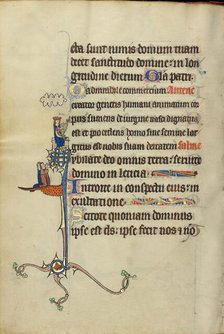 sta sunt nimis domum tuam
decet sanctitudo domine in lon
gitudine dierum Gloria patri
O admirabile commercium Antene
creator generis humani animatum cor
pus sumens de virgine nasci dignatus
est et procedens homo sine semine lar
gitus est nobis suam deitatem
Jubilate deo omnis terra: servite
domino in leticia
Introite in conspectu eius: in
exultatione
Scitote quoniam dominus
ipse est ds: ipse fecit nos et no